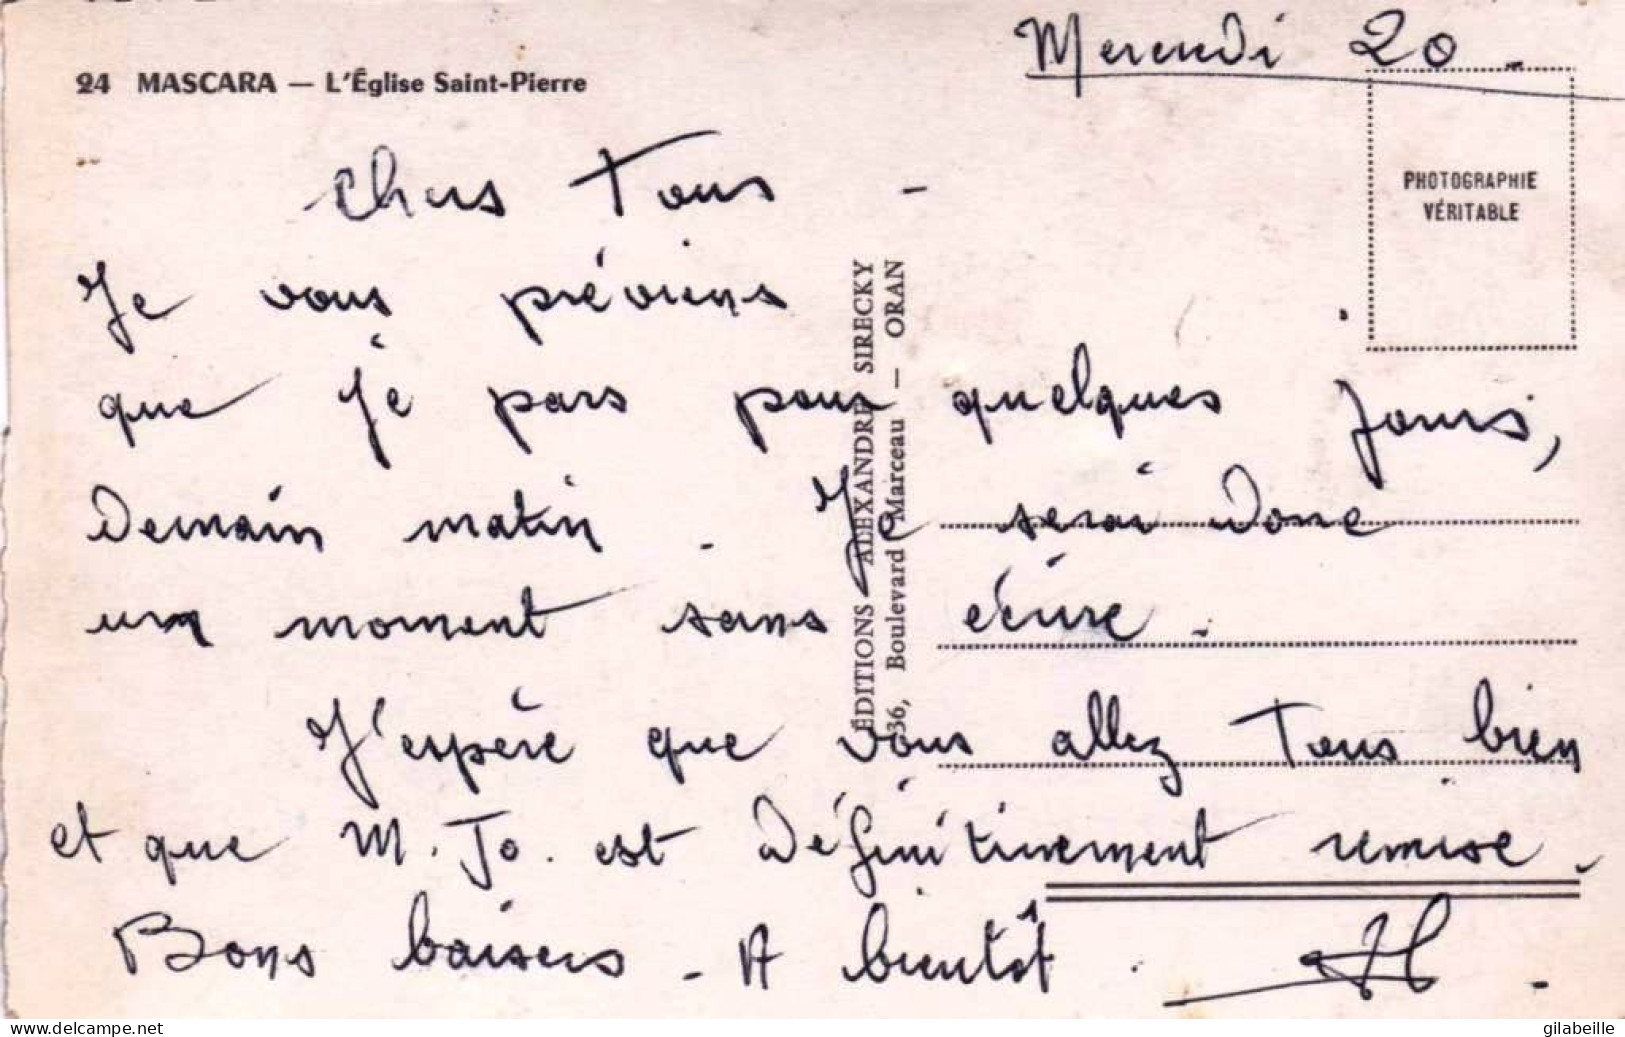 Mercredi 20.
24 MASCARA — L'Église Saint-Pierre
PHOTOGRAPHIE
VÉRITABLE
Chers Tous -
Je vous préviens
que je pars pour quelques jours,
demain matin. Je serai donc
un moment sans écrire.
J'espère que vous allez Tous bien
et que M. Jo. est définitivement remise.
Bons baisers - A bientôt.
ÉDITIONS ALEXANDRE SIRECKY
36, Boulevard Marceau — ORAN
www.delcampe.net
gilabeille